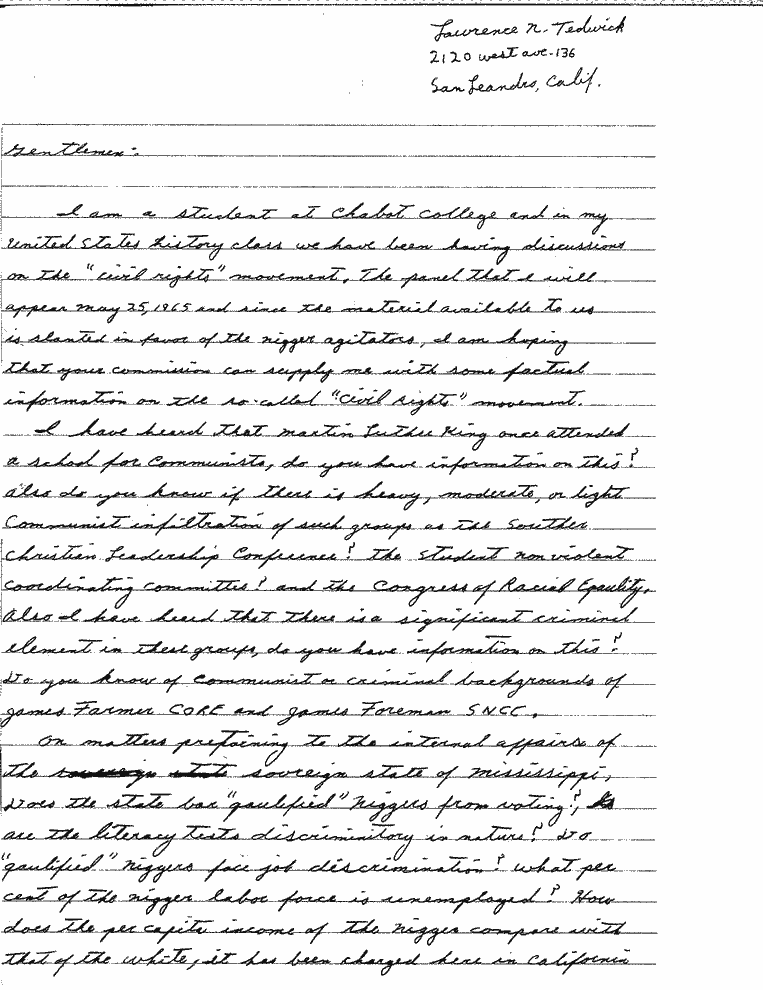 Lawrence N. Tedwick
2120 west ave. 136
San Leandro, Calif.
Gentlemen:
I am a student at Chabot College and in my
United States history class we have been having discussions
on the "civil rights" movement. The panel that I will
appear may 25, 1965 and since the material available to us
is slanted in favor of the nigger agitators, I am hoping
that your commission can supply me with some factual
information on the so-called "Civil Rights" movement.
I have heard that martin Luther King once attended
a school for Communists, do you have information on this?
also do you know if there is heavy, moderate, or light
Communist infiltration of such groups as the Souther
Christian Leadership Conference? the Student non violent
coordinating committee? and the Congress of Racial Equality.
Also I have heard that there is a significant criminal
element in these groups, do you have information on this?
Do you know of Communist or criminal backgrounds of
James Farmer CORE and James Foreman SNCC.
On matters pretaining to the internal affairs of
the sovereign state sovreign state of Mississippi,
Does the state bar "gaulified" Niggers from voting?,
are the literacy tests discriminitory in nature? Do
"gaulified" Niggers face job discrimination? What per
cent of the nigger labor force is unemployed? How
does the per capita income of the Nigger compare with
that of the white, it has been charged here in California